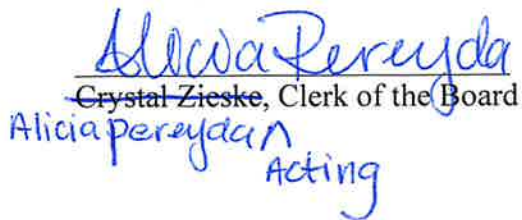 Alicia Pereyda
Crystal Zieske, Clerk of the Board
Alicia Pereyda ^
Acting